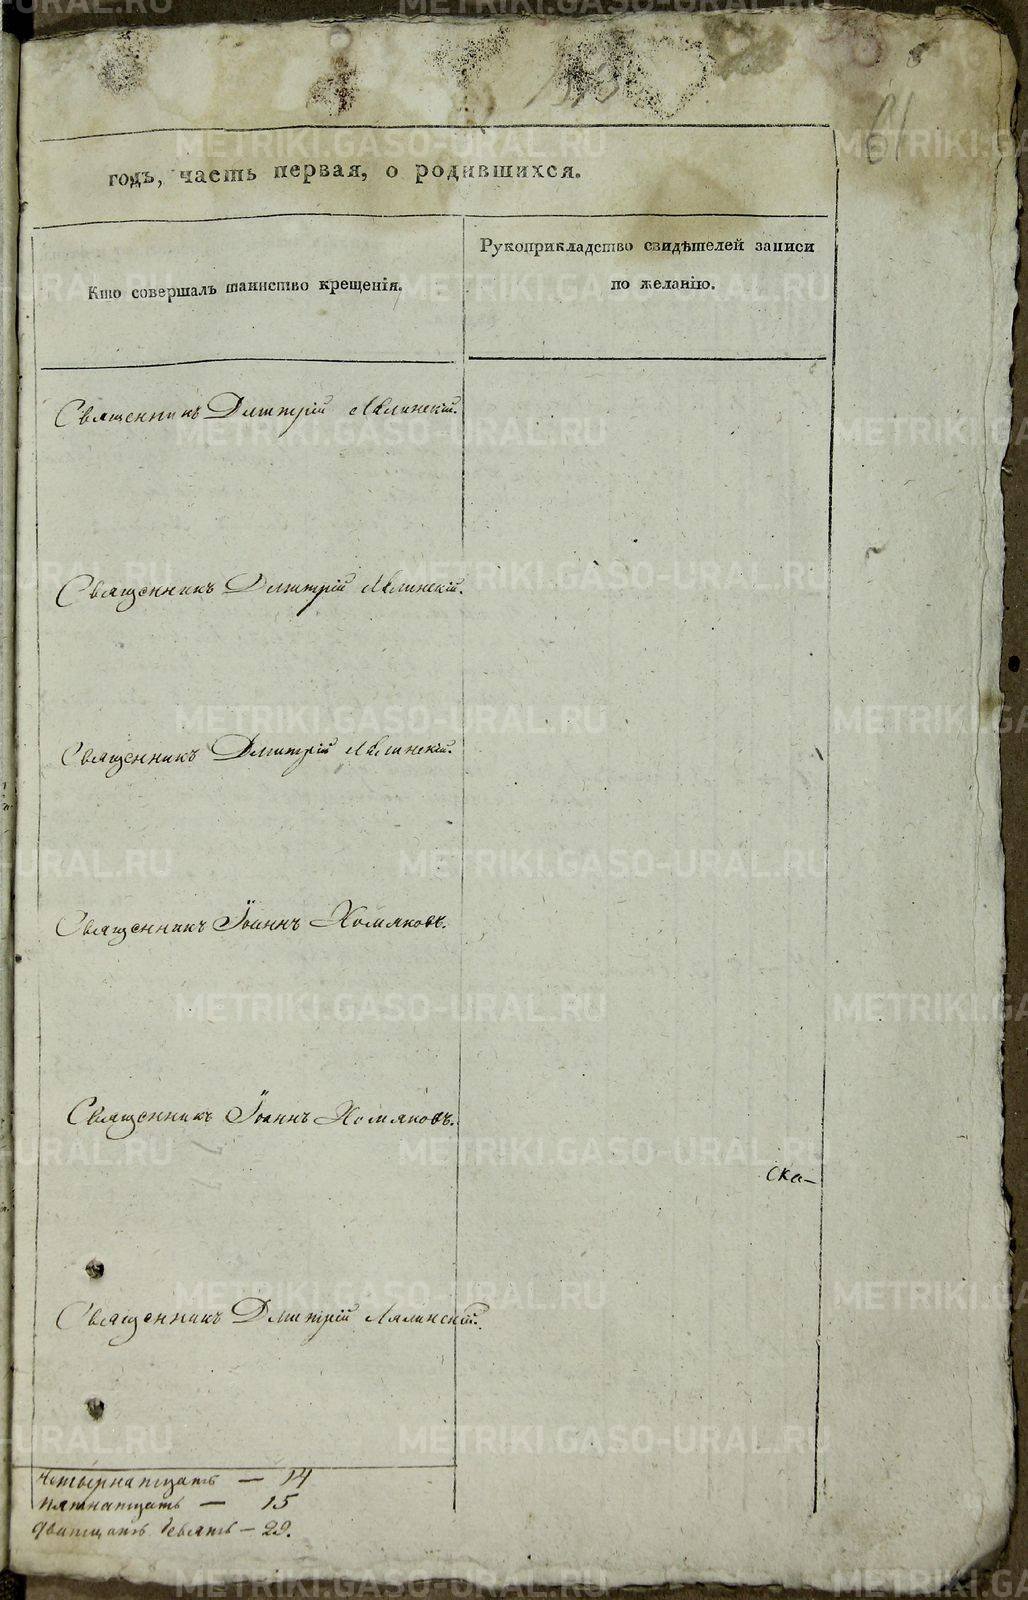 годъ, часть первая, о родившихся.
Кто совершалъ таинство крещенія.
Рукоприкладство свидѣтелей записи
по желанію.
Священникъ Дмитрій Лялинскій.
Священникъ Дмитрій Лялинскій.
Священникъ Дмитрій Лялинскій.
Священникъ Іоаннъ Хомяковъ.
Священникъ Іоаннъ Хомяковъ.
Ска-
Священникъ Дмитрій Лялинскій.
четырнатцать — 14
пятнатцать — 15
дватцать девять — 29.
METRIKI.GASO-URAL.RU